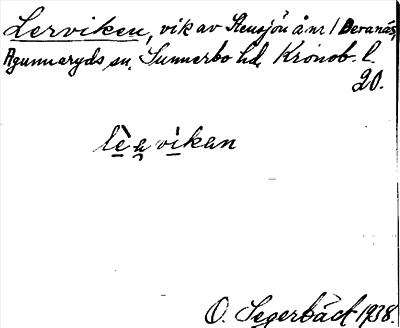 Lerviken, vik av Stensjön å nr 1 Beranäs,
Agunnaryds sn, Sunnerbo hd, Kronob. l.
20.
lè a vìkan
O. Segerbäck 1938.